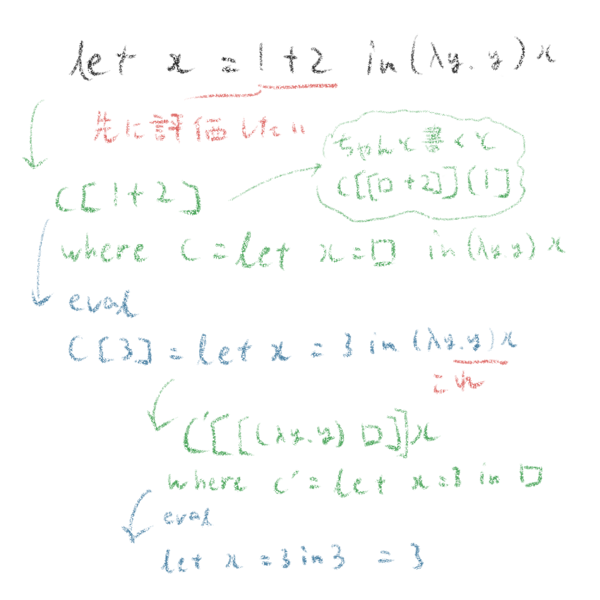 let x = 1+2 in (λy.y) x
先に評価したい
ちゃんと書くと
C[[□+2]][1]
C[1+2]
where C = let x = □ in (λy.y) x
eval
C[3] = let x = 3 in (λy.y) x
これ
C'[[(λy.y) □]]x
where C' = let x = 3 in □
eval
let x = 3 in 3 = 3